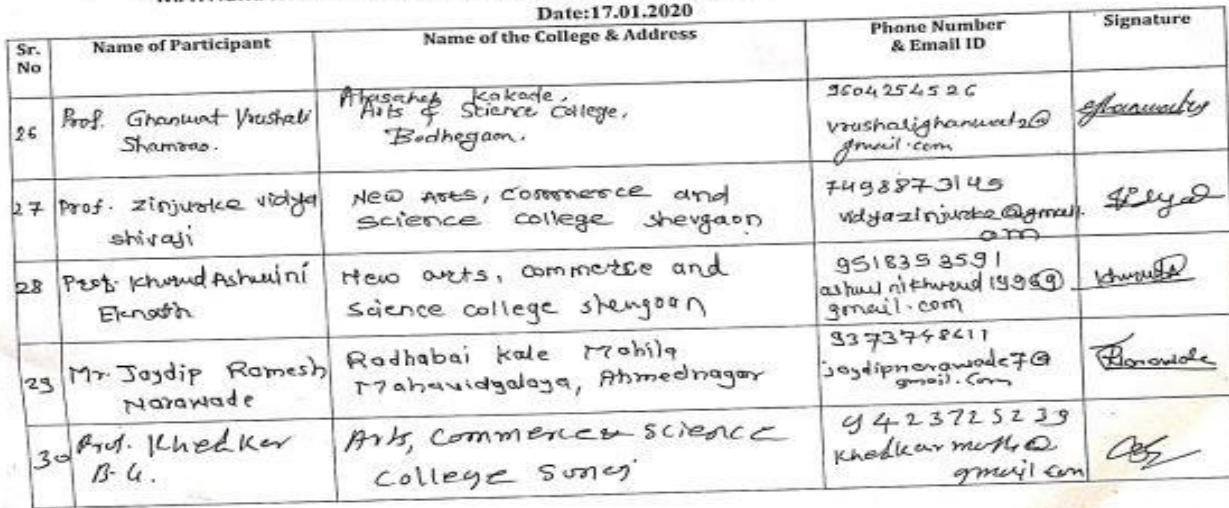 Date:17.01.2020
Sr. No
Name of Participant
Name of the College & Address
Phone Number & Email ID
Signature
26
Prof. Ghanwat Vrushali
Shamrao.
Abasaheb Kakade,
Arts & Science College,
Bodhegaon.
9604254526
vrushalighanwat2@
gmail.com
27
Prof. Zinjurke vidya
shivaji
New Arts, Commerce and
Science college shevgaon
7498873145
vidyazinjurke@gmail.
com
28
Prof. Khurud Ashwini
Eknath
New arts, commerce and
Science college shevgaon
9518353591
gmail.com
29
Mr. Jaydip Ramesh
Narawade
Radhabai Kale Mahila
Mahavidyalaya, Ahmednagar
9373748611
jaydipnarawade7@
gmail.com
30
Prof. Khedker
Arts, Commerce & Science
College
9423725239
gmail com